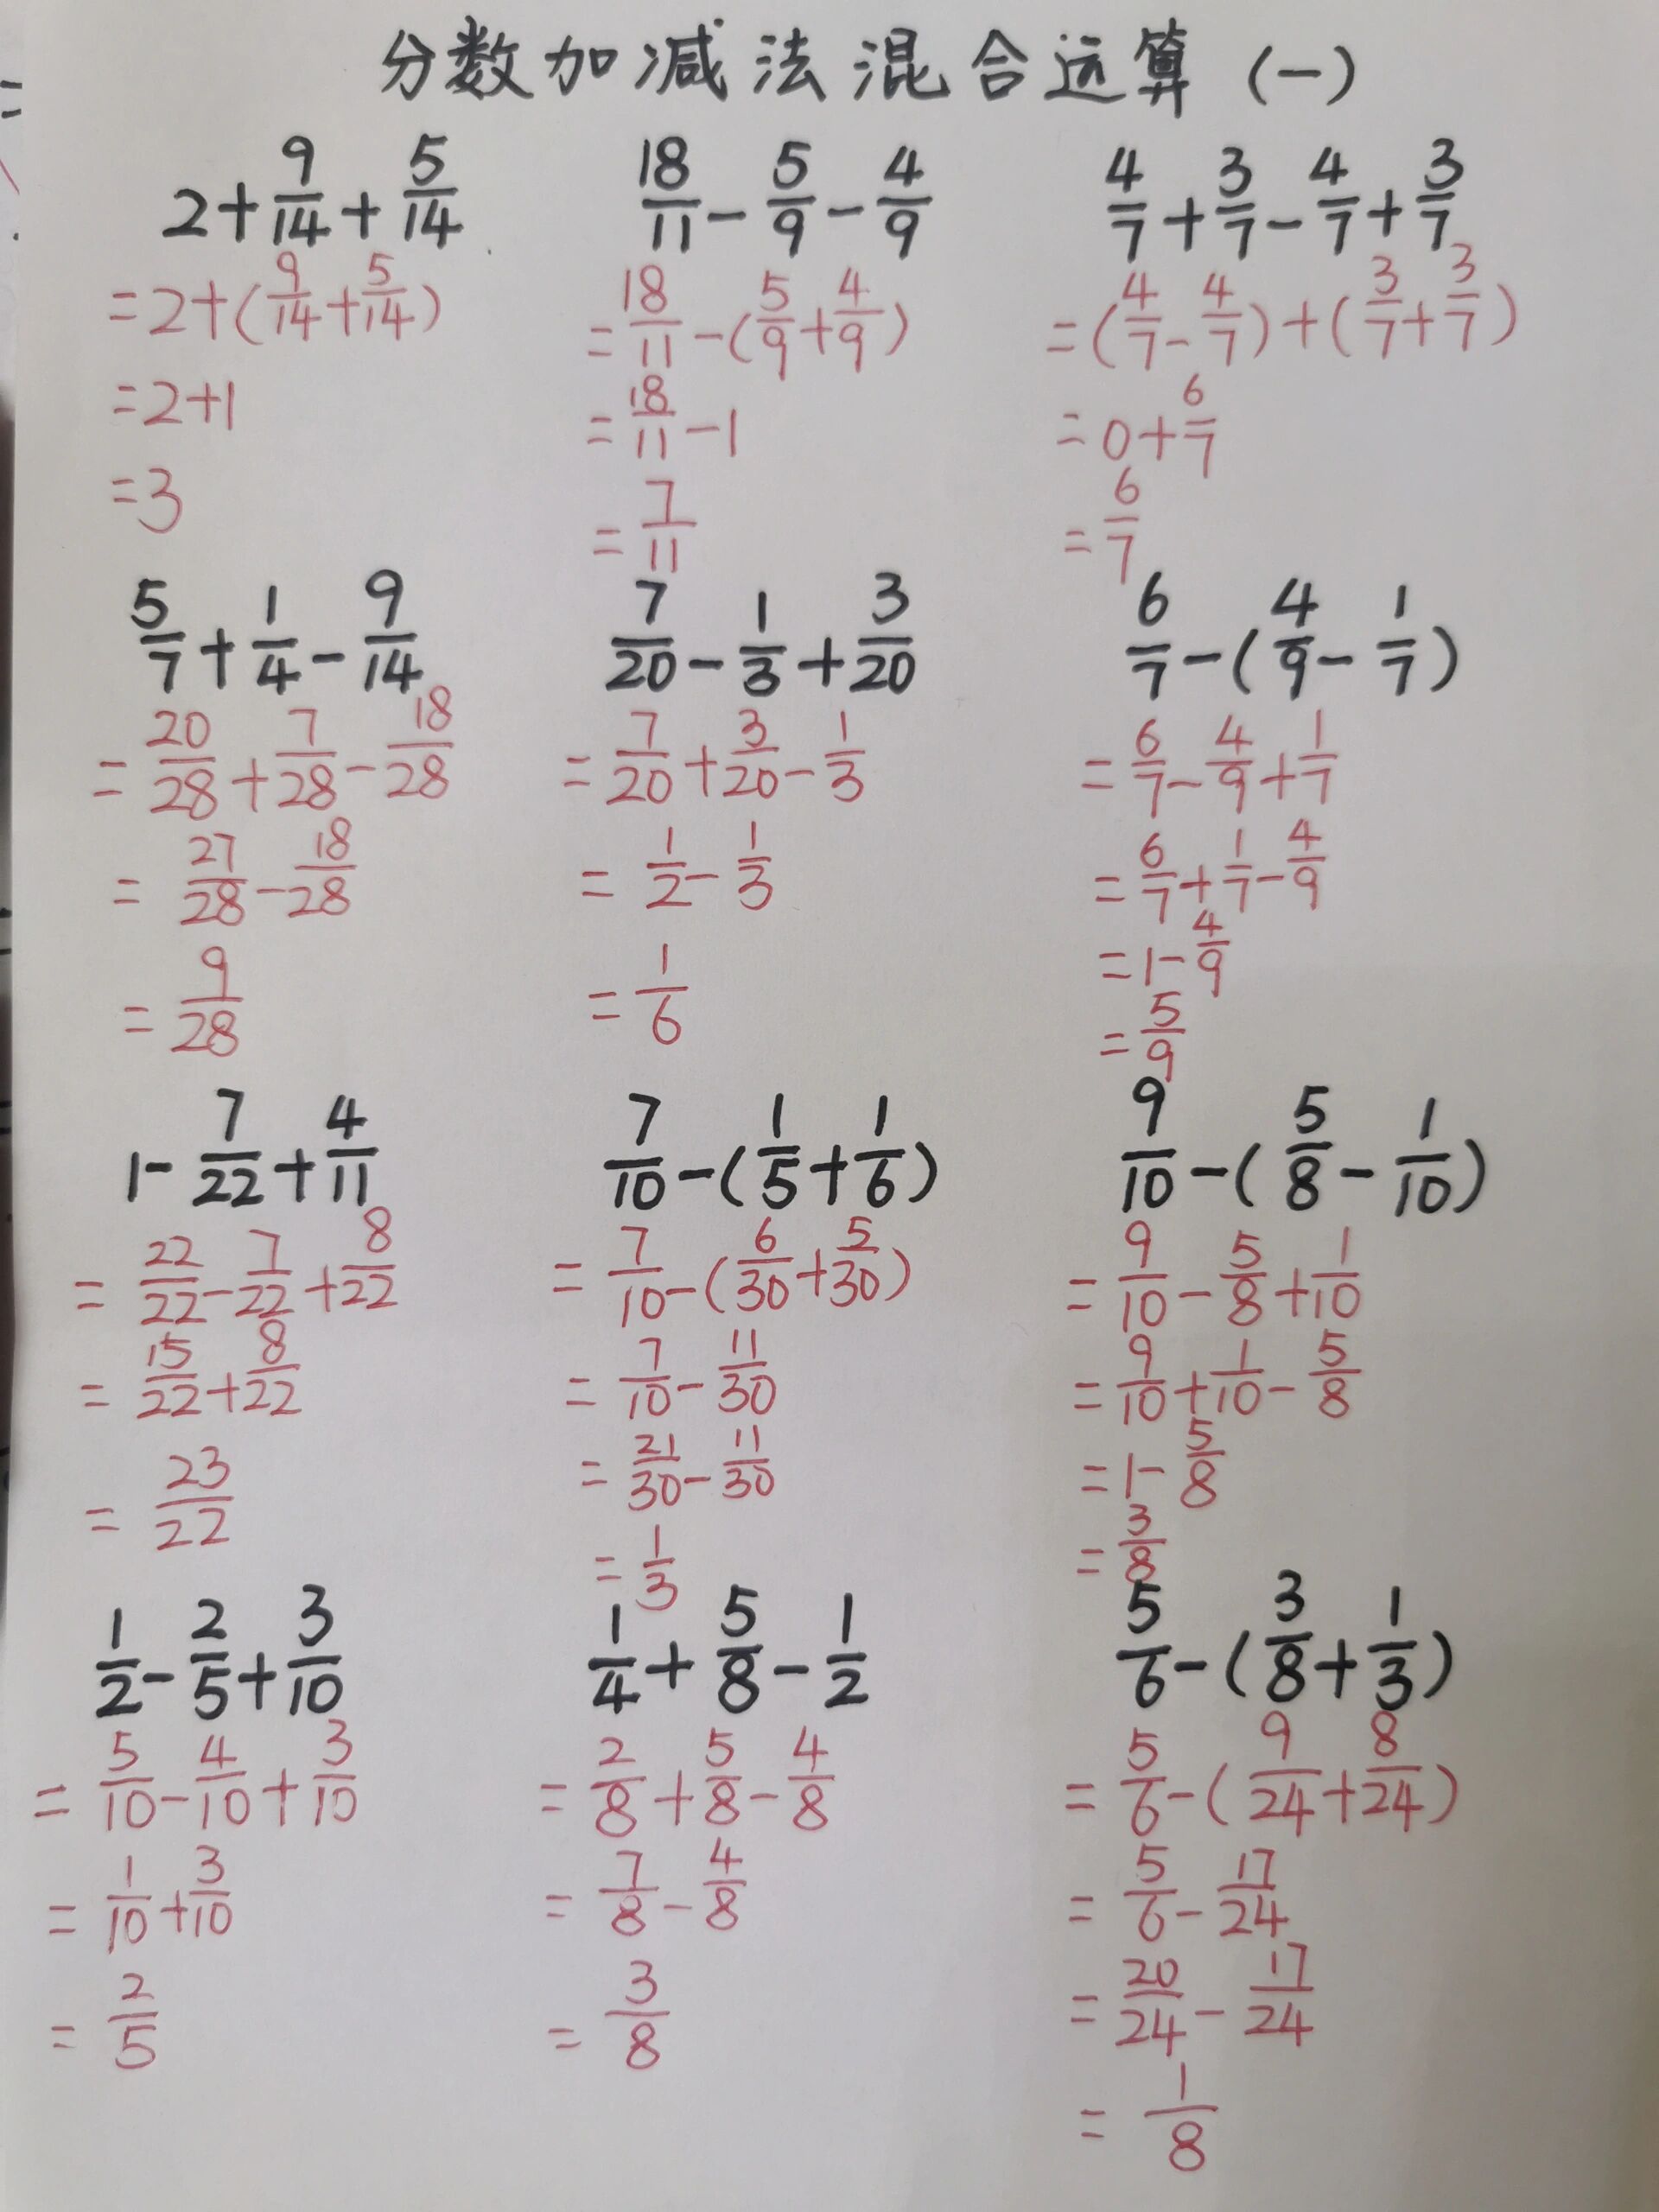 分数加减法混合运算（一）
2+9/14+5/14
=2+(9/14+5/14)
=2+1
=3
18/11-5/9-4/9
=18/11-(5/9+4/9)
=18/11-1
=7/11
4/7+3/7-4/7+3/7
=(4/7-4/7)+(3/7+3/7)
=0+6/7
=6/7
5/7+1/4-9/14
=20/28+7/28-18/28
=27/28-18/28
=9/28
7/20-1/3+3/20
=7/20+3/20-1/3
=1/2-1/3
=1/6
6/7-(4/9-1/7)
=6/7-4/9+1/7
=6/7+1/7-4/9
=1-4/9
=5/9
1-7/22+4/11
=22/22-7/22+8/22
=15/22+8/22
=23/22
7/10-(1/5+1/6)
=7/10-(6/30+5/30)
=7/10-11/30
=21/30-11/30
=1/3
9/10-(5/8-1/10)
=9/10-5/8+1/10
=9/10+1/10-5/8
=1-5/8
=3/8
1/2-2/5+3/10
=5/10-4/10+3/10
=1/10+3/10
=2/5
1/4+5/8-1/2
=2/8+5/8-4/8
=7/8-4/8
=3/8
5/6-(3/8+1/3)
=5/6-(9/24+8/24)
=5/6-17/24
=20/24-17/24
=1/8